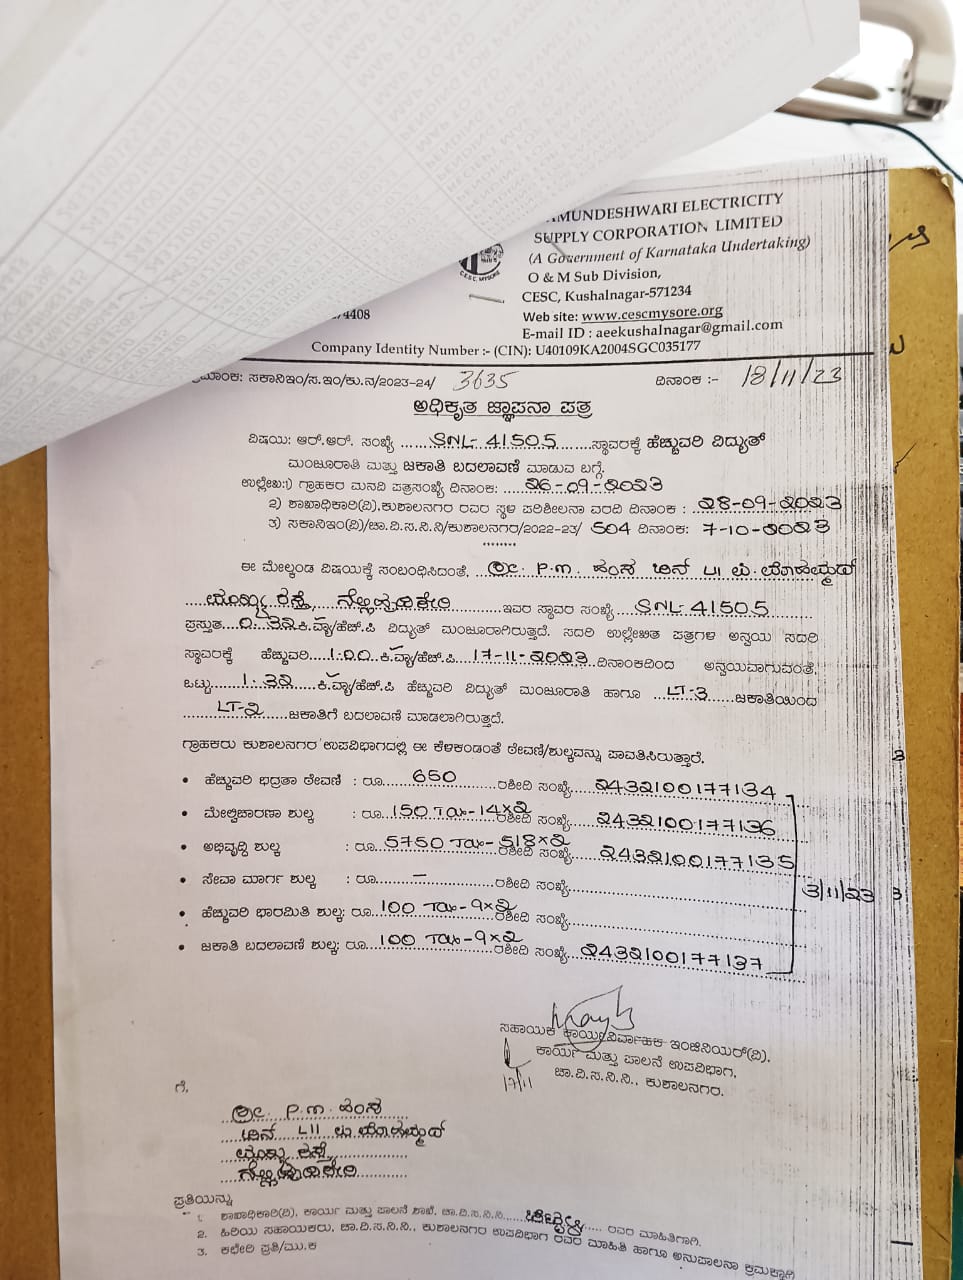 MUNDESHWARI ELECTRICITY
SUPPLY CORPORATION LIMITED
(A Government of Karnataka Undertaking)
O & M Sub Division,
CESC, Kushalnagar-571234
4408
Web site: www.cescmysore.org
E-mail ID : aeekushalnagar@gmail.com
Company Identity Number :- (CIN): U40109KA2004SGC035177
ಸಕಾನಿಇಂ/ಸ.ಇಂ/ಕು.ನ/2023-24/ 3635 ದಿನಾಂಕ :- 18/11/23
ಅಧಿಕೃತ ಜ್ಞಾಪನಾ ಪತ್ರ
ವಿಷಯ: ಆರ್.ಆರ್. ಸಂಖ್ಯೆ ......SNL-41505......ಸ್ಥಾವರಕ್ಕೆ ಹೆಚ್ಚುವರಿ ವಿದ್ಯುತ್
ಮಂಜೂರಾತಿ ಮತ್ತು ಜಕಾತಿ ಬದಲಾವಣೆ ಮಾಡುವ ಬಗ್ಗೆ.
ಉಲ್ಲೇಖ:1) ಗ್ರಾಹಕರ ಮನವಿ ಪತ್ರಸಂಖ್ಯೆ ದಿನಾಂಕ: ....26-09-2023
2) ಶಾಖಾಧಿಕಾರಿ(ವಿ),ಕುಶಾಲನಗರ ರವರ ಸ್ಥಳ ಪರಿಶೀಲನಾ ವರದಿ ದಿನಾಂಕ : 28-09-2023
3) ಸಕಾನಿಇಂ(ವಿ)/ಚಾ.ವಿ.ಸ.ನಿ.ನಿ/ಕುಶಾಲನಗರ/2022-23/ 504 ದಿನಾಂಕ: 7-10-2023
........
ಈ ಮೇಲ್ಕಂಡ ವಿಷಯಕ್ಕೆ ಸಂಬಂಧಿಸಿದಂತೆ, ಶ್ರೀ. P.M. ಹಂಸ
ರಸ್ತೆ, ನೆಲ್ಲಿಹುದಿಕೇರಿ ......ಇವರ ಸ್ಥಾವರ ಸಂಖ್ಯೆ ....SNL-41505
ಪ್ರಸ್ತುತ....0.32 ಕಿ.ವ್ಯಾ/ಹೆಚ್.ಪಿ ವಿದ್ಯುತ್ ಮಂಜೂರಾಗಿರುತ್ತದೆ. ಸದರಿ ಉಲ್ಲೇಖಿತ ಪತ್ರಗಳ ಅನ್ವಯ ಸದರಿ
ಸ್ಥಾವರಕ್ಕೆ ಹೆಚ್ಚುವರಿ....1.00..ಕಿ.ವ್ಯಾ/ಹೆಚ್.ಪಿ...17-11-2023..ದಿನಾಂಕದಿಂದ ಅನ್ವಯವಾಗುವಂತೆ,
ಒಟ್ಟು......1.32....ಕಿ.ವ್ಯಾ/ಹೆಚ್.ಪಿ ಹೆಚ್ಚುವರಿ ವಿದ್ಯುತ್ ಮಂಜೂರಾತಿ ಹಾಗೂ ...LT-3......ಜಕಾತಿಯಿಂದ
......LT-2.....ಜಕಾತಿಗೆ ಬದಲಾವಣೆ ಮಾಡಲಾಗಿರುತ್ತದೆ.
ಗ್ರಾಹಕರು ಕುಶಾಲನಗರ ಉಪವಿಭಾಗದಲ್ಲಿ ಈ ಕೆಳಕಂಡಂತೆ ಠೇವಣಿ/ಶುಲ್ಕವನ್ನು ಪಾವತಿಸಿರುತ್ತಾರೆ.
• ಹೆಚ್ಚುವರಿ ಭದ್ರತಾ ಠೇವಣಿ : ರೂ....650......ರಶೀದಿ ಸಂಖ್ಯೆ....2432100177134
• ಮೇಲ್ವಿಚಾರಣಾ ಶುಲ್ಕ : ರೂ...150 Tax-14x2 ರಶೀದಿ ಸಂಖ್ಯೆ...2432100177136
• ಅಭಿವೃದ್ಧಿ ಶುಲ್ಕ : ರೂ...5750 Tax-518x2 ರಶೀದಿ ಸಂಖ್ಯೆ...2432100177135
• ಸೇವಾ ಮಾರ್ಗ ಶುಲ್ಕ : ರೂ......–......ರಶೀದಿ ಸಂಖ್ಯೆ...... 3/11/23
• ಹೆಚ್ಚುವರಿ ಭಾರಮಿತಿ ಶುಲ್ಕ: ರೂ...100 Tax-9x2 ರಶೀದಿ ಸಂಖ್ಯೆ......
• ಜಕಾತಿ ಬದಲಾವಣೆ ಶುಲ್ಕ: ರೂ...100 Tax-9x2 ರಶೀದಿ ಸಂಖ್ಯೆ...2432100177137
ಸಹಾಯಕ ಕಾರ್ಯನಿರ್ವಾಹಕ ಇಂಜಿನಿಯರ್(ವಿ).
ಕಾರ್ಯ ಮತ್ತು ಪಾಲನೆ ಉಪವಿಭಾಗ,
17/11 ಚಾ.ವಿ.ಸ.ನಿ.ನಿ., ಕುಶಾಲನಗರ.
ಗೆ,
ಶ್ರೀ. P.M. ಹಂಸ
ರಸ್ತೆ
ನೆಲ್ಲಿಹುದಿಕೇರಿ
ಪ್ರತಿಯನ್ನು
1. ಶಾಖಾಧಿಕಾರಿ(ವಿ), ಕಾರ್ಯ ಮತ್ತು ಪಾಲನೆ ಶಾಖೆ, ಚಾ.ವಿ.ಸ.ನಿ.ನಿ...... ರವರ ಮಾಹಿತಿಗಾಗಿ.
2. ಹಿರಿಯ ಸಹಾಯಕರು, ಚಾ.ವಿ.ಸ.ನಿ.ನಿ., ಕುಶಾಲನಗರ ಉಪವಿಭಾಗ ರವರ ಮಾಹಿತಿ ಹಾಗೂ ಅನುಪಾಲನಾ ಕ್ರಮಕ್ಕಾಗಿ
3. ಕಛೇರಿ ಪ್ರತಿ/ಮು.ಕ